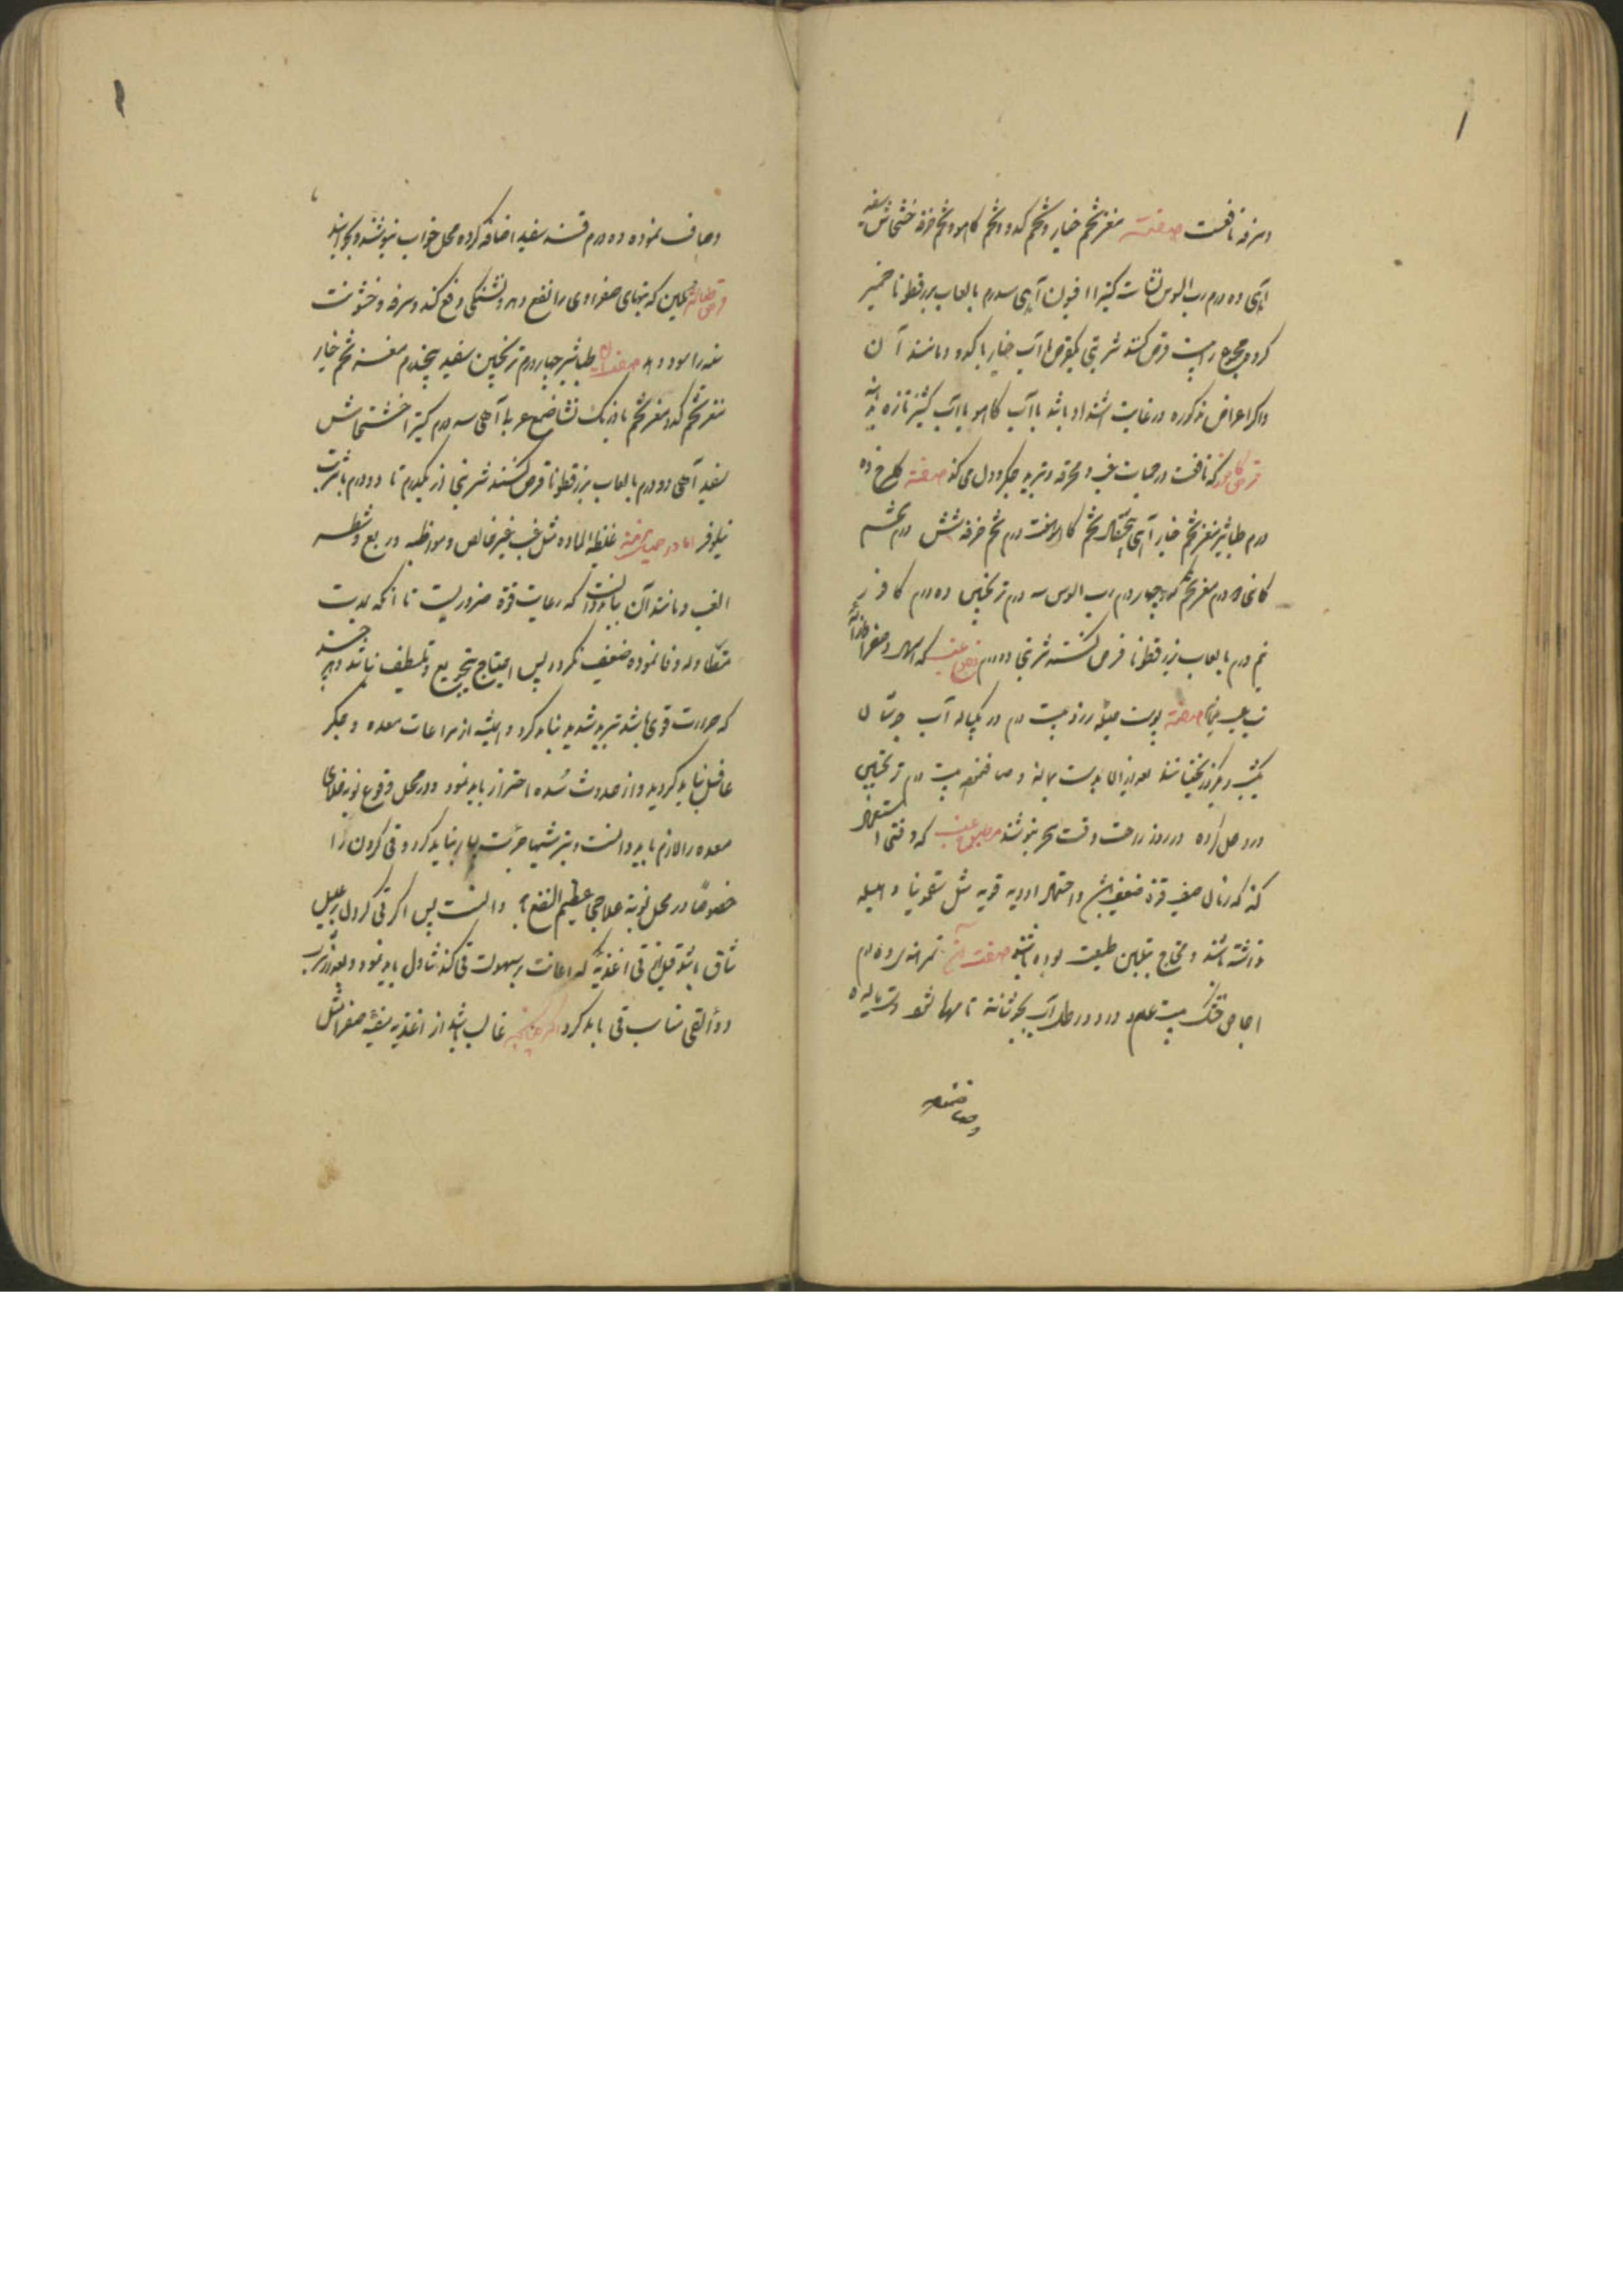 وسرفه نافعست صفته مغز تخم خیار و تخم کدو و تخم کاهو و تخم خرفه خشخاش سفید
ده درم رب السوس نشاسته کتیرا افیون سه درم بالعاب بزرقطونا خمیر
کرده مجموع را بیست قرص کنند شربتی یکقرص با آب خیار یا کدو و مانند آن
واکر اعراض مذکوره در غایت اشتداد باشد با آب کاهو یا آب کشنیز تازه
قرص کافور که نافعست در حمیات غب و محرقه و تبرید جکر و دل می کند صفته کلسرخ ده
درم طباشیر مغز تخم خیار تخم کاهو هفت درم تخم خرفه شش درم
درم مغز تخم کدو چهار درم رب السوس سه درم ترنجبین ده درم کافور
نیم درم بالعاب بزرقطونا قرص کنند شربتی دو درم که اسهال صفرا
صفته پوست هلیله زرد بیست درم در یکپیاله آب جوشان
یکشب و یکروز بخیسانند بعد از ان بدست بمالند و صاف نموده بیست درم ترنجبین
درو حل کرده در روز راحت وقت سحر بنوشند مطبوخ که وقتی استعمال
کنند که زمان صیف قوة ضعیف باشد و احتمال ادویه قویه مثل سقمونیا و هلیله
نداشته باشند و محتاج بتلیین طبیعت بوده باشند صفت آن تمر هندی ده درم
اجاص خشک بیست عدد در دو رطل آب بجوشانند تا مهرا شود و دست مالیده
وصاف نموده
وصاف نموده ده درم قند سفید اضافه کرده محل خواب بنوشند
قرص طباشیر ملین که تبهای صفراوی را نفع دهد و تشنکی دفع کند و سرفه و خشونت
را سود دهد صفت آن طباشیر چهار درم ترنجبین سفید پنجدرم مغز تخم خیار
مغز تخم کدو مغز تخم بادرنک نشا صمغ عربی سه درم کتیرا خشخاش
سفید دو درم بالعاب بزرقطونا قرص کنند شربتی از یکدرم تا دو درم با شربت
نیلوفر اما در حمیات غلیظ الماده مثل غب غیر خالص و مواظبه و ربع و شطر
الغب و مانند آن باید دانست که رعایت قوة ضروریست تا انکه بمدت
متطاوله وفا نموده ضعیف نکردد پس احتیاج بتجویع و تلطیف نباشد و هر چند
که حرارت قوی باشد تبرید شدید نباید کرد و همیشه از مراعات معده و جکر
غافل نباید کردید و از حدوث سده احتراز باید نمود و در محل وقوع نوبه خلای
معده را لازم باید دانست و بر شیا جرئت بسیار نباید کرد و قی کردن را
خصوصا در محل نوبة علاجی عظیم النفع دانست پس اکر قی کردن بر علیل
شاق باشد قبل از قی اغذیه که اعانت بر سهولت قی کند تناول باید نمود و بعد از شرب
دواء القی مناسب قی باید کرد اکر غالب باشد از اغذیه صفرا مثل